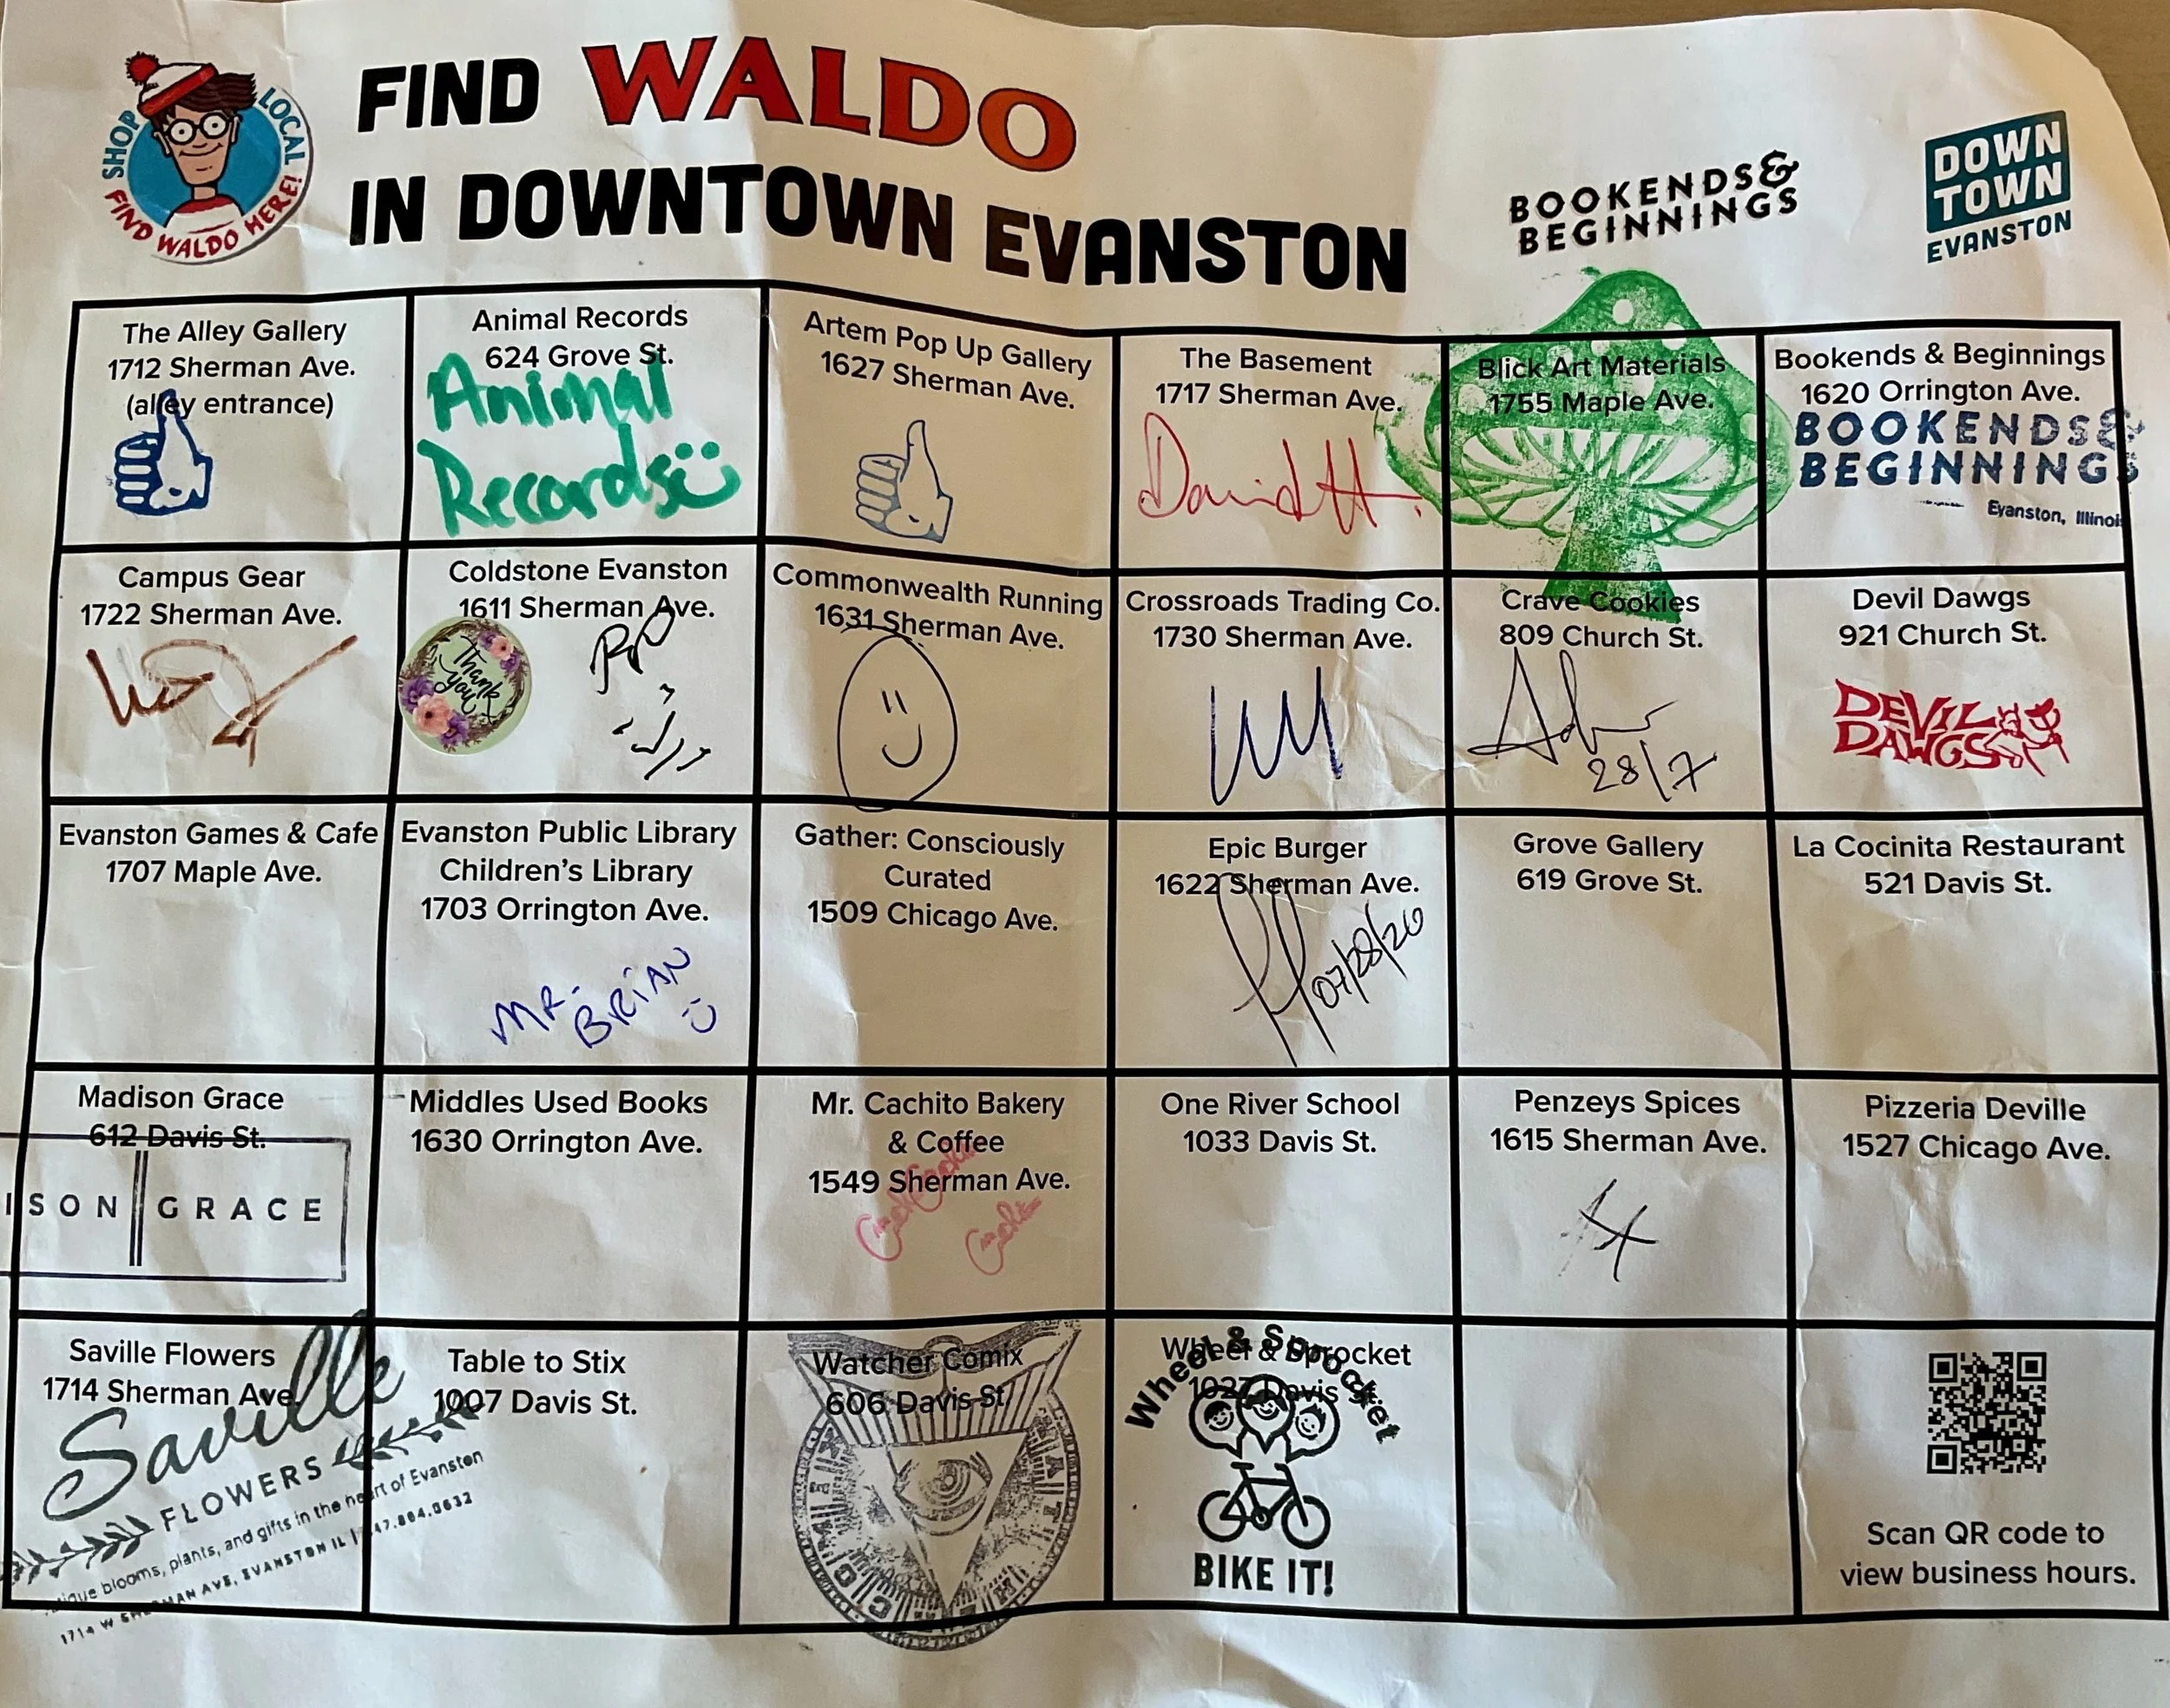 SHOP LOCAL
FIND WALDO HERE!
FIND WALDO
IN DOWNTOWN EVANSTON
BOOKENDS&
BEGINNINGS
DOWN
TOWN
EVANSTON
The Alley Gallery
1712 Sherman Ave.
(alley entrance)
Animal Records
624 Grove St.
Animal
Records
Artem Pop Up Gallery
1627 Sherman Ave.
The Basement
1717 Sherman Ave.
David H.
Blick Art Materials
1755 Maple Ave.
Bookends & Beginnings
1620 Orrington Ave.
BOOKENDS&
BEGINNINGS
Evanston, Illinois
Campus Gear
1722 Sherman Ave.
Coldstone Evanston
1611 Sherman Ave.
Thank
you
Commonwealth Running
1631 Sherman Ave.
Crossroads Trading Co.
1730 Sherman Ave.
Crave Cookies
809 Church St.
28/7
Devil Dawgs
921 Church St.
DEVIL
DAWGS
Evanston Games & Cafe
1707 Maple Ave.
Evanston Public Library
Children's Library
1703 Orrington Ave.
MR.
BRIAN
Gather: Consciously
Curated
1509 Chicago Ave.
Epic Burger
1622 Sherman Ave.
07/28/26
Grove Gallery
619 Grove St.
La Cocinita Restaurant
521 Davis St.
Madison Grace
612 Davis St.
ISON GRACE
Middles Used Books
1630 Orrington Ave.
Mr. Cachito Bakery
& Coffee
1549 Sherman Ave.
One River School
1033 Davis St.
Penzeys Spices
1615 Sherman Ave.
Pizzeria Deville
1527 Chicago Ave.
Saville Flowers
1714 Sherman Ave.
Saville
FLOWERS
blooms, plants, and gifts in the heart of Evanston
1714 W SHERMAN AVE, EVANSTON IL | 847.864.0632
Table to Stix
1007 Davis St.
Watcher Comix
606 Davis St.
Wheel & Sprocket
1027 Davis
Wheel & Sprocket
BIKE IT!
Scan QR code to
view business hours.